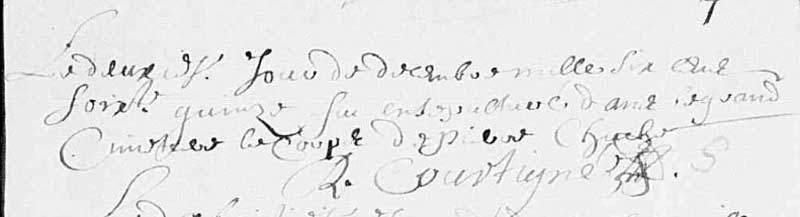 Le deuxies. Jour de decembre mille six cent
soixte. quinze fut ensepulturé dans le grand
Cimetiere le Corps de pierre
R. Courtigne